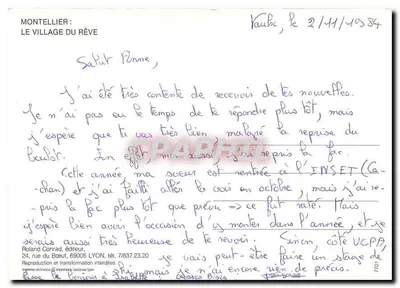 MONTELLIER :
LE VILLAGE DU RÊVE
le 2/11/1984
Salut
J'ai été très contente de recevoir de tes nouvelles.
Je n'ai pas eu le temps de te répondre plus tôt, mais
j'espère que tu vas très bien, malgré la reprise du
boulot. En effet moi aussi, j'ai repris la fac.
Cette année, ma soeur est rentrée à l'ENSET (Ca-
chan) et j'ai failli aller la voir en octobre, mais j'ai re-
pris la fac plus tôt que prévu => ce fut raté. Mais
j'espère bien avoir l'occasion d'y monter dans l'année, et je
serais aussi très heureuse de te revoir. Sinon, côté UCPA,
je vais peut-être faire un stage de
mais je n'ai encore rien de précis.
Roland Conrad, éditeur.
24, rue du Bœuf, 69005 LYON, tél. 7/837.23.20
Reproduction et transformation interdites.
CPAPHIL